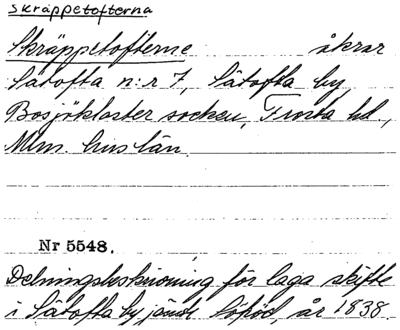 Skräppetofterna
Skräppetofterne åkrar
Sätofta n:r 7, Sätofta by
Bosjökloster socken, Frosta hd.,
Mlm. hus län.
Nr 5548.
Delningsbeskrivning för laga skifte
i Sätofta by jämt Söhöd, år 1838.